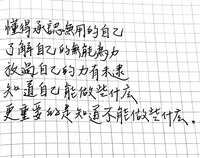 懂得承認無用的自己
了解自己的無能為力
放過自己的力有未逮
知道自己能做些什麼
更重要的是知道不能做些什麼。